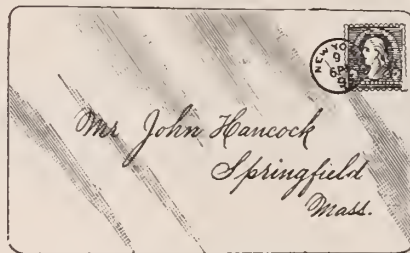 NEW YORK
9
6P
Mr John Hancock
Springfield
Mass.